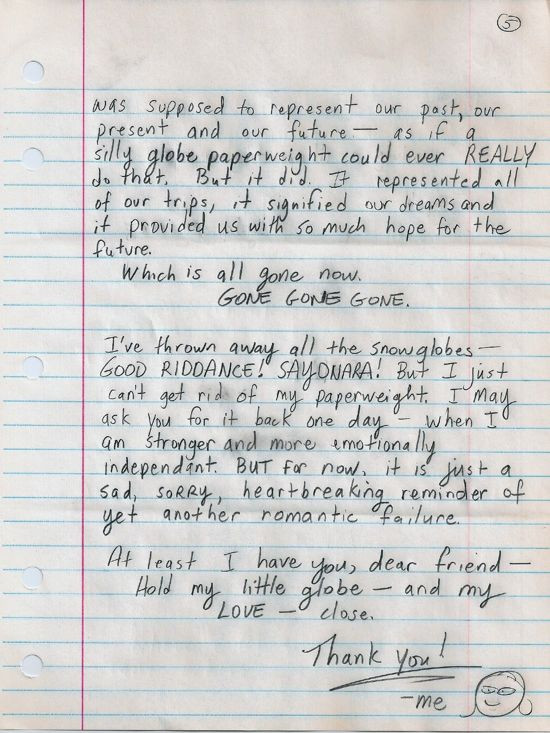 5
was supposed to represent our past, our
present and our future — as if a
silly globe paperweight could ever REALLY
do that. But it did. It represented all
of our trips, it signified our dreams and
it provided us with so much hope for the
future.
Which is all gone now.
GONE GONE GONE.
I've thrown away all the snowglobes —
GOOD RIDDANCE! SAYONARA! But I just
can't get rid of my paperweight. I may
ask you for it back one day — when I
am stronger and more emotionally
independant. BUT for now, it is just a
sad, SORRY, heartbreaking reminder of
yet another romantic failure.
At least I have you, dear friend —
Hold my little globe — and my
LOVE — close.
Thank you!
-me